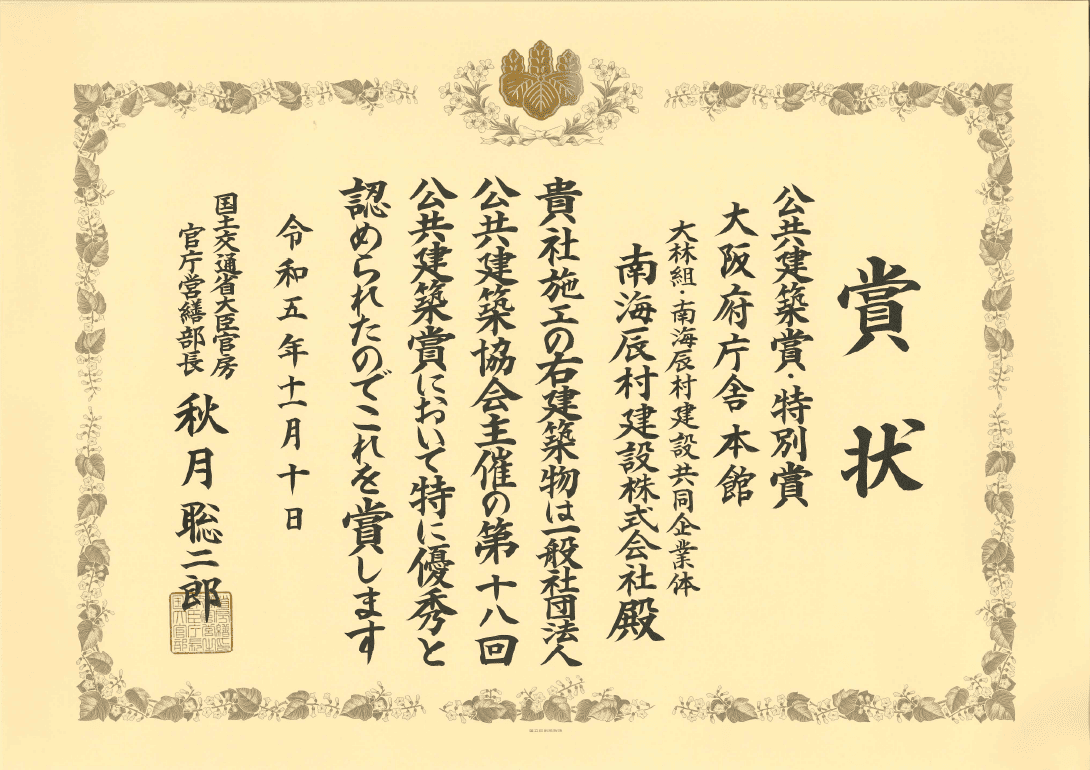 賞状
公共建築賞・特別賞
大阪府庁舎本館
大林組・南海辰村建設共同企業体
南海辰村建設株式会社殿
貴社施工の右建築物は一般社団法人
公共建築協会主催の第十八回
公共建築賞において特に優秀と
認められたのでこれを賞します
令和五年十一月十日
国土交通省大臣官房
官庁営繕部長
秋月聡二郎